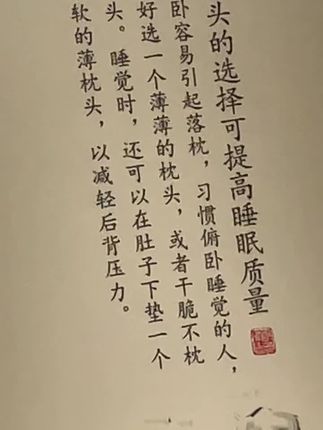 头的选择可提高睡眠质量
卧容易引起落枕，习惯俯卧睡觉的人，
好选一个薄薄的枕头，或者干脆不枕
头。睡觉时，还可以在肚子下垫一个
软的薄枕头，以减轻后背压力。